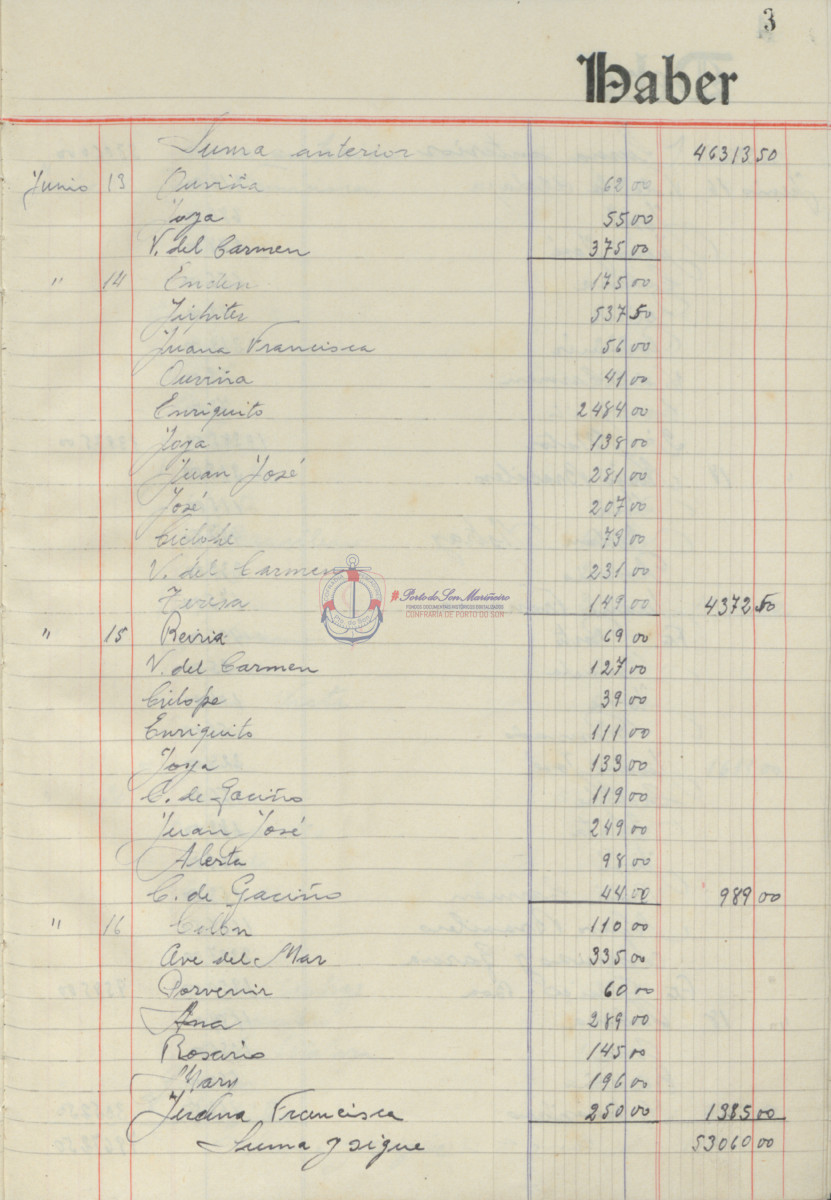 3
Haber
Suma anterior 46313 50
Junio 13 Ouviña 62 00
Joya 55 00
V. del Carmen 375 00
" 14 Emden 175 00
Jupiter 537 50
Juana Francisca 56 00
Ouviña 41 00
Enriquito 2484 00
Joya 138 00
Juan José 281 00
José 207 00
Ciclope 73 00
V. del Carmen 231 00
Teresa 149 00 4372 50
" 15 69 00
V. del Carmen 127 00
Ciclope 39 00
Enriquito 111 00
Joya 133 00
C. de Gaciño 119 00
Juan José 249 00
Alerta 98 00
C. de Gaciño 44 00 989 00
" 16 Colón 110 00
Ave del Mar 335 00
Porvenir 60 00
Ana 289 00
Rosario 145 00
Mary 196 00
Francisca 250 00 1385 00
Suma y sigue 53060 00
Porto do Son Mariñeiro
FONDOS DOCUMENTAIS HISTÓRICOS DIXITALIZADOS
CONFRARÍA DE PORTO DO SON